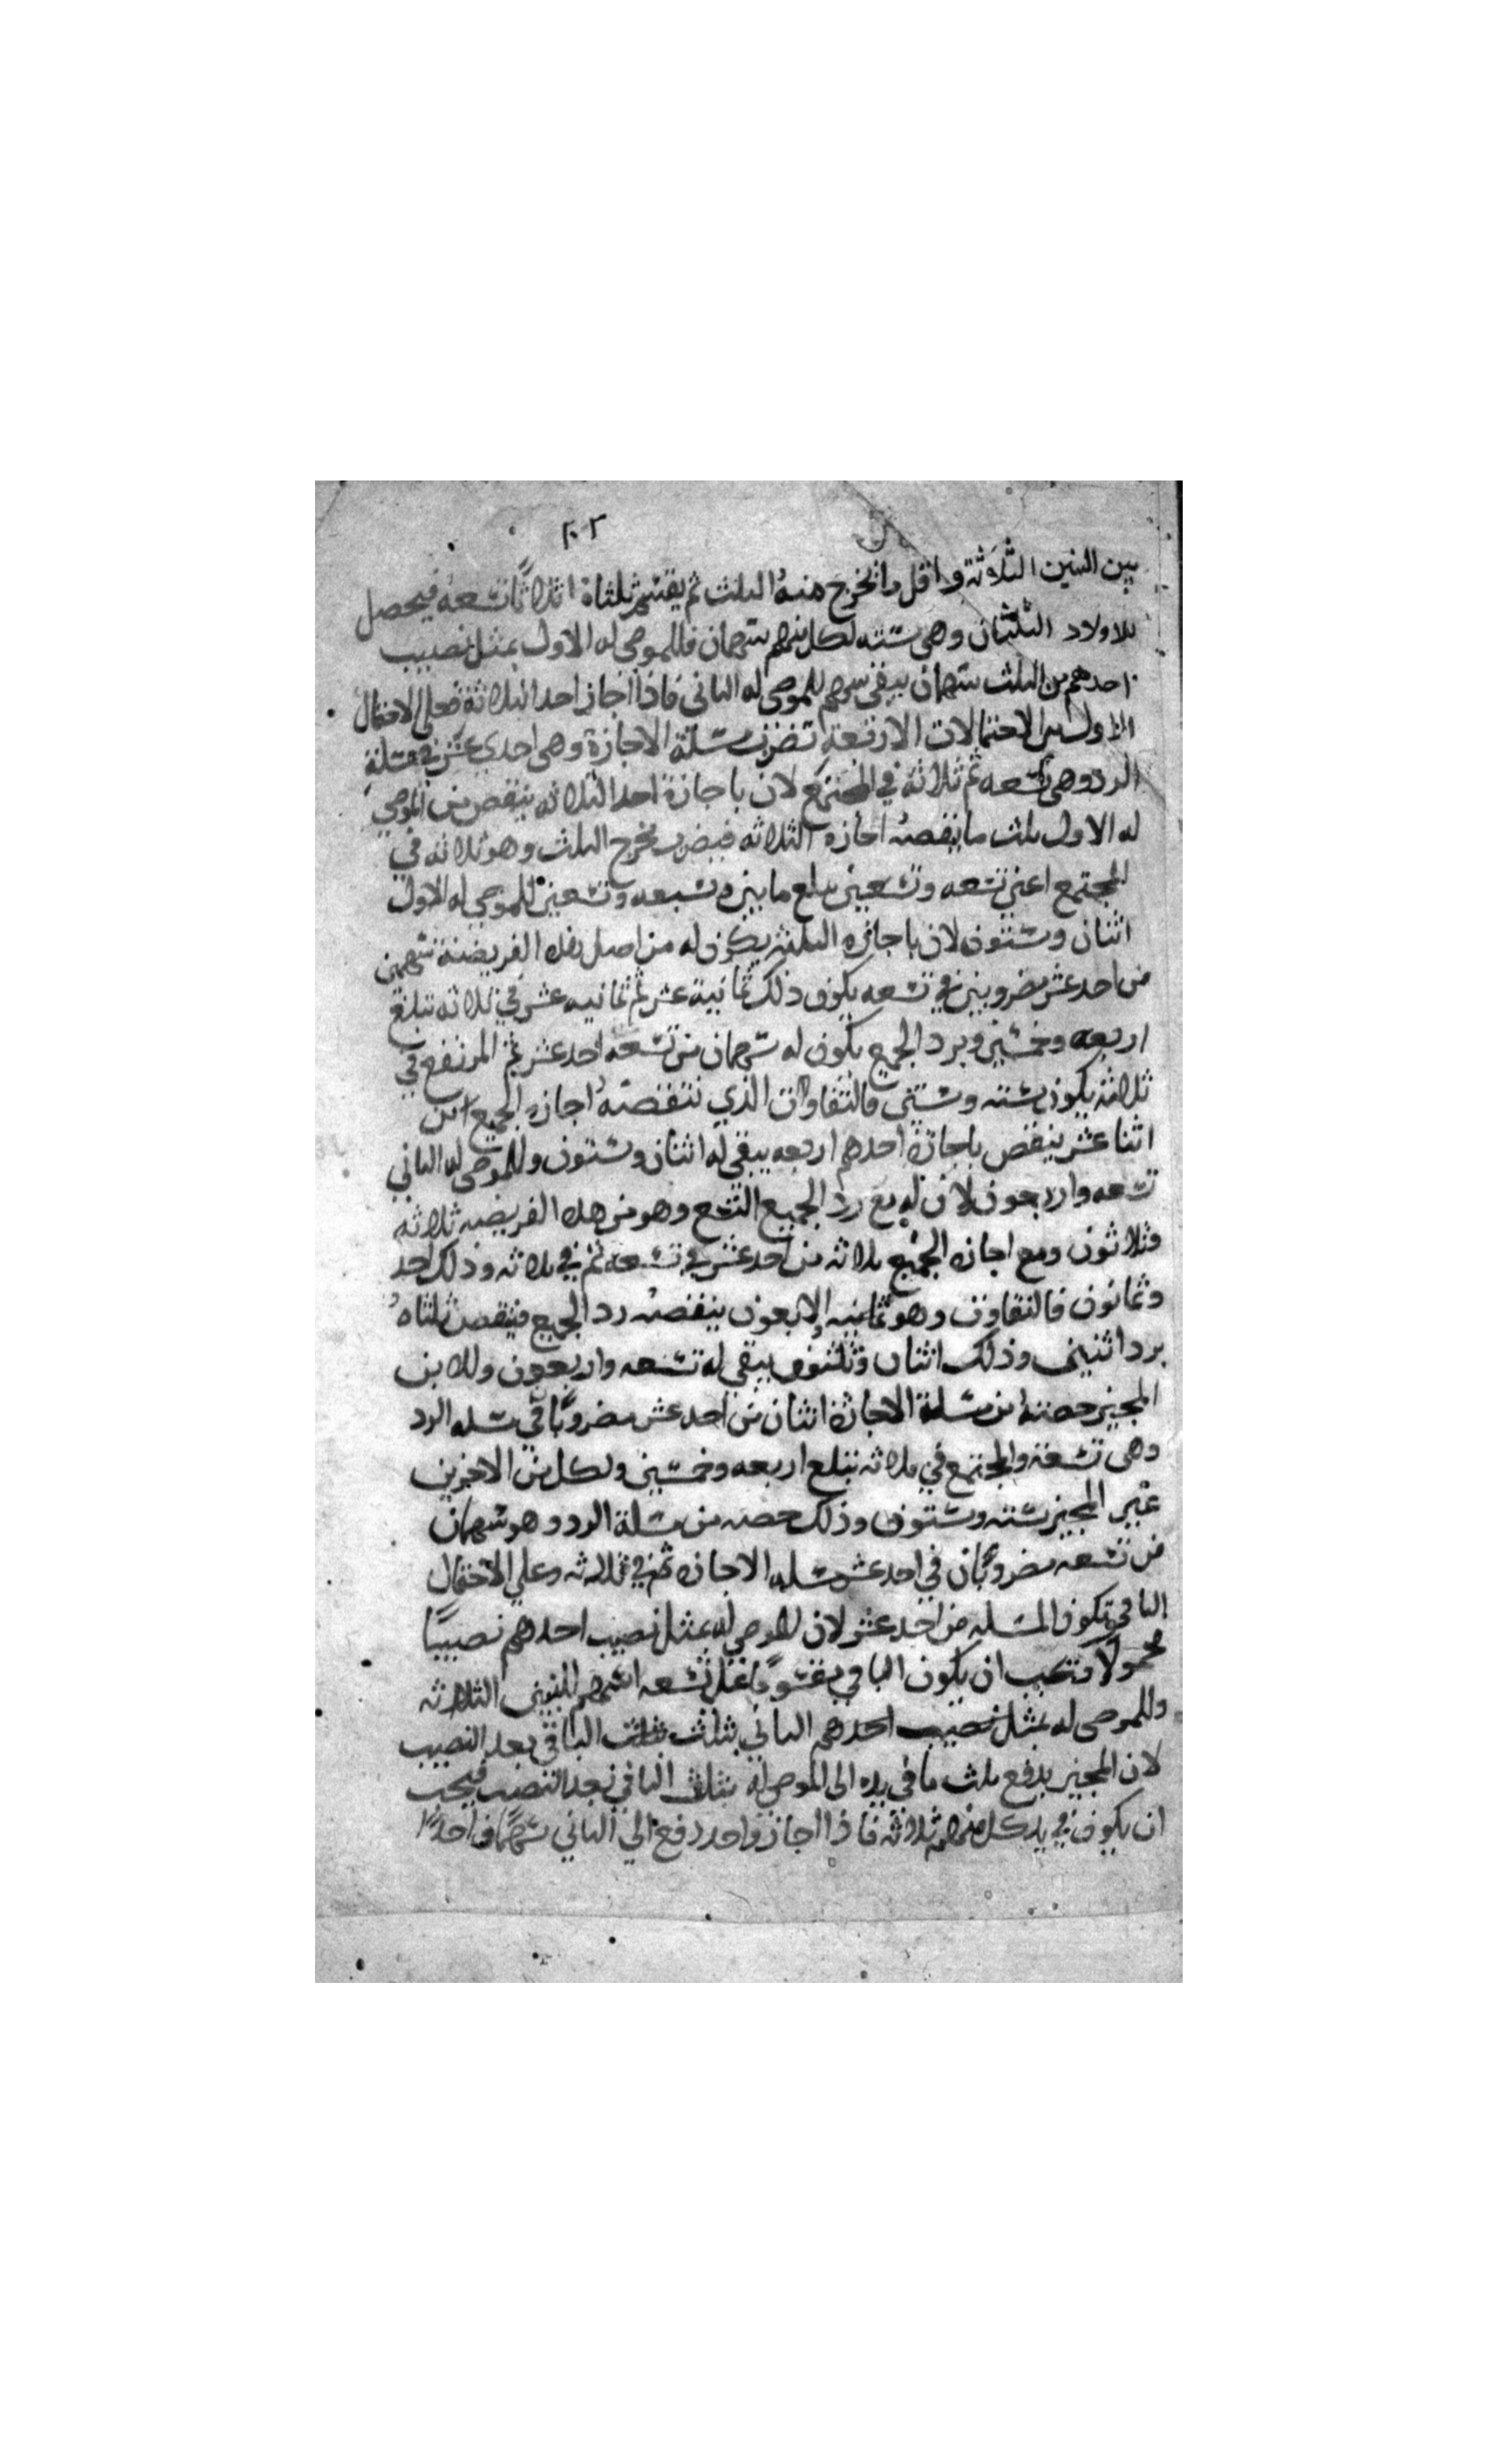 ٢٠٢
بين البنين الثلاثة واقل ما يخرج منه الثلث ثم يقسم ثلثاه اثلاثا تسعه فيحصل
للاولاد الثلثان وهى ستته لكل منهم سهمان فللموصى له الاول بمثل نصيب
احدهم من الثلث سهمان يبقى سهم للموصى له الثانى فاذا اجاز احد الثلاثة فعلى الاحتمال
الاول من الاحتمالات الاربعة تضرب مسئلة الاجازة وهى احدى عشر فى مسئلة
الرد وهى تسعه ثم ثلاثة في المجتمع لان باجازة احد الثلاثه ينقص من الموصي
له الاول ثلث ما ينقصه اجازه الثلاثه فيضرب مخرج الثلث وهو ثلاثه في
المجتمع اعنى تسعه وتسعين يبلغ مايتين وسبعه وتسعين للموصي له الاول
اثنان وستون لان باجازه الثلثه يكون له من اصل هذه الفريضة سهمين
من احد عشر مضروبين في تسعه يكون ذلك ثمانية عشر ثم ثمانيه عشر في ثلاثه تبلغ
اربعه وخمسين وبرد الجميع يكون له سهمان من تسعه احد عشر ثم المرتفع في
ثلاثه يكون سته وستين فالتفاوت الذي تنقصه اجازه الجميع
اثنا عشر ينقص باجازة احدهم اربعه يبقى له اثنان وستون وللموصى له الثاني
تسعه واربعون لان له مع رد الجميع التسع وهو من هذه الفريضه ثلاثه
وثلاثون ومع اجازه الجميع ثلاثه من احد عشر في تسعه ثم في ثلاثه وذلك احد
وثمانون فالتفاوت وهو ثمانيه واربعون ينقصه رد الجميع فينقص ثلثاه
برد اثنين وذلك اثنان وثلثون يبقى له تسعه واربعون وللابن
المجيز حصته من مسئلة الاجازة اثنان من احد عشر مضروبا في مسئله الرد
وهى تسعة والمجتمع في ثلاثه تبلغ اربعه وخمسين ولكل من الاخرين
غير المجيز سته وستون وذلك حصته من مسئلة الرد وهو سهمان
من تسعه مضروبان في احد عشر مسئله الاجازه ثم في ثلاثه وعلي الاحتمال
الثاني تكون المسئله من احد عشر لان للموصي له بمثل نصيب احدهم نصيبا
مجهولا ويجب ان يكون الباقي مقسوما على تسعه اسهم للبنين الثلاثه
وللموصى له بمثل نصيب احدهم الثاني بثلث ثلث الباقي بعد النصيب
لان المجيز يدفع ثلث ما في يده الى الموصى له بثلث الباقي بعد النصيب فيجب
ان يكون في يد كل منهم ثلاثه فاذا اجاز واحد دفع الي الثاني سهما واحدا